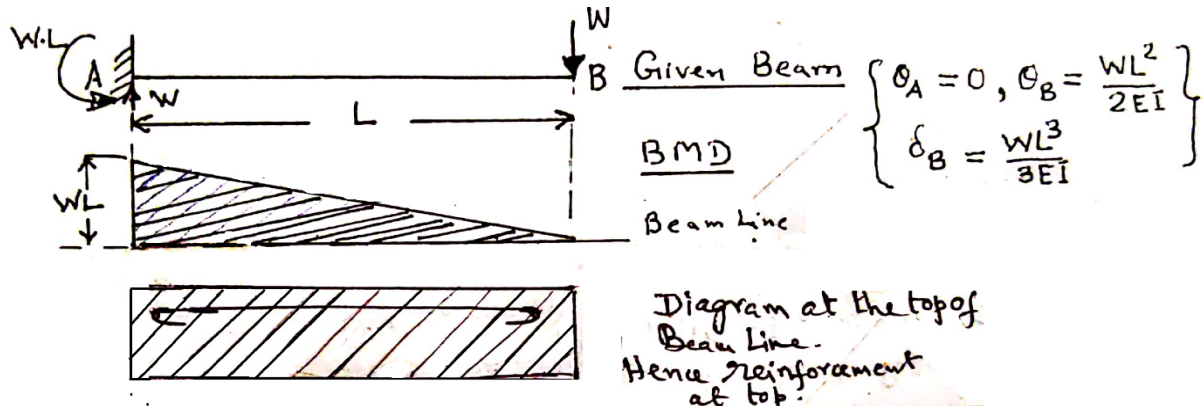 W.L
A
W
W
B
L
Given Beam
θ_A = 0, θ_B = WL²/2EI
δ_B = WL³/3EI
BMD
WL
Beam Line
Diagram at the top of
Beam Line.
Hence reinforcement
at top.